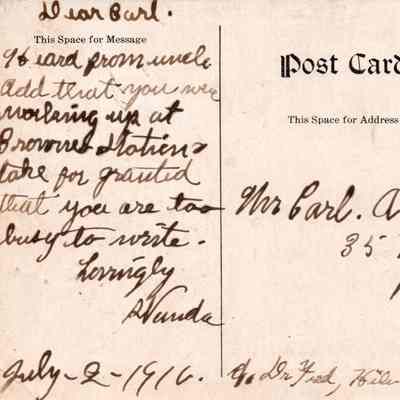 Dear Carl.
This Space for Message
Heard from uncle
Add that you were
working up at
Browns Station
take for granted
that you are too
busy to write.
Lovingly
Wanda
July-2-1916.
Post Card
This Space for Address
Mr Carl. A
35
c/o Dr Fred,